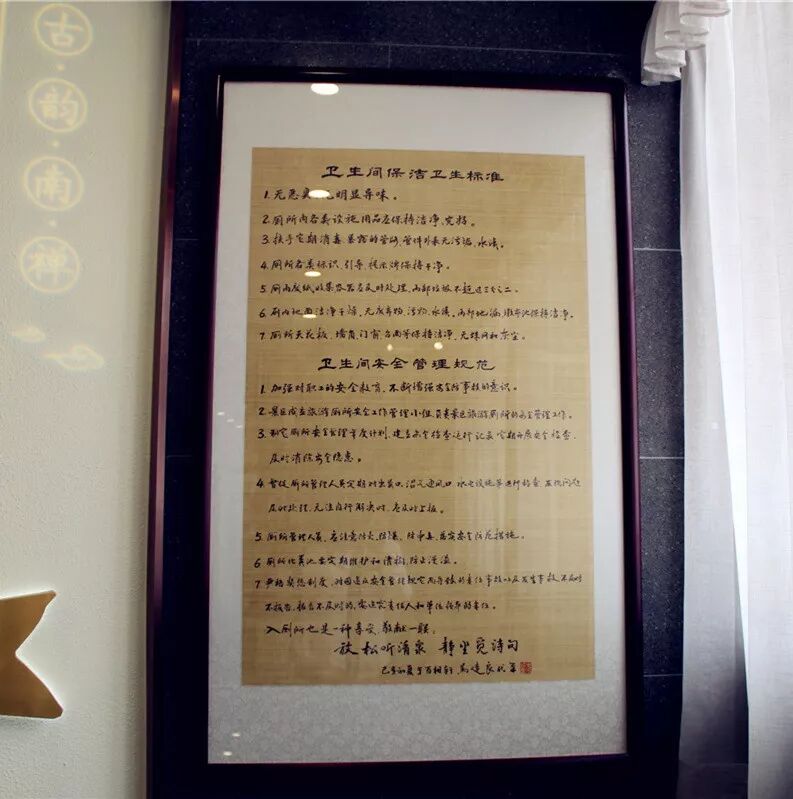 古·韵·南·禅
卫生间保洁卫生标准
1. 无恶臭,无明显异味。
2. 厕所内各类设施用品应保持洁净、完好。
3. 扶手定期消毒、暴露的管路、管件外表无污垢、水渍。
4. 厕所各类标识、引导、提示牌保持干净。
5. 厕内废纸收集容器应及时处理,内部垃圾不超过三分之二。
6. 厕内地面洁净干燥、无废弃物、污物、水渍。
7. 厕所天花板、墙角、门窗、台面等保持洁净、无蛛网和灰尘。
卫生间安全管理规范
1. 加强对职工的安全教育,不断增强安全防事故的意识。
2. 景区成立旅游厕所安全工作管理小组,负责景区旅游厕所的安全管理工作。
3. 制定厕所安全管理年度计划,建立安全检查运行记录,定期开展安全检查,
及时消除安全隐患。
4. 厕所管理人员定期对出入口、通风口、水电设施等进行检查,发现问题
及时处理,无法自行解决时,应及时上报。
5. 厕所管理人员,应注意防火、防爆、防中毒,落实安全防范措施。
6. 厕所化粪池要定期维护和清掏,防止漫溢。
7. 严格奖惩制度,对因违反安全管理规定而导致的责任事故以及发生事故,不及时
不报告、报告不及时的,要追究责任人和单位领导的责任。
入厕所也是一种享受,敬献一联:
放松听清泉 静坐觅诗句